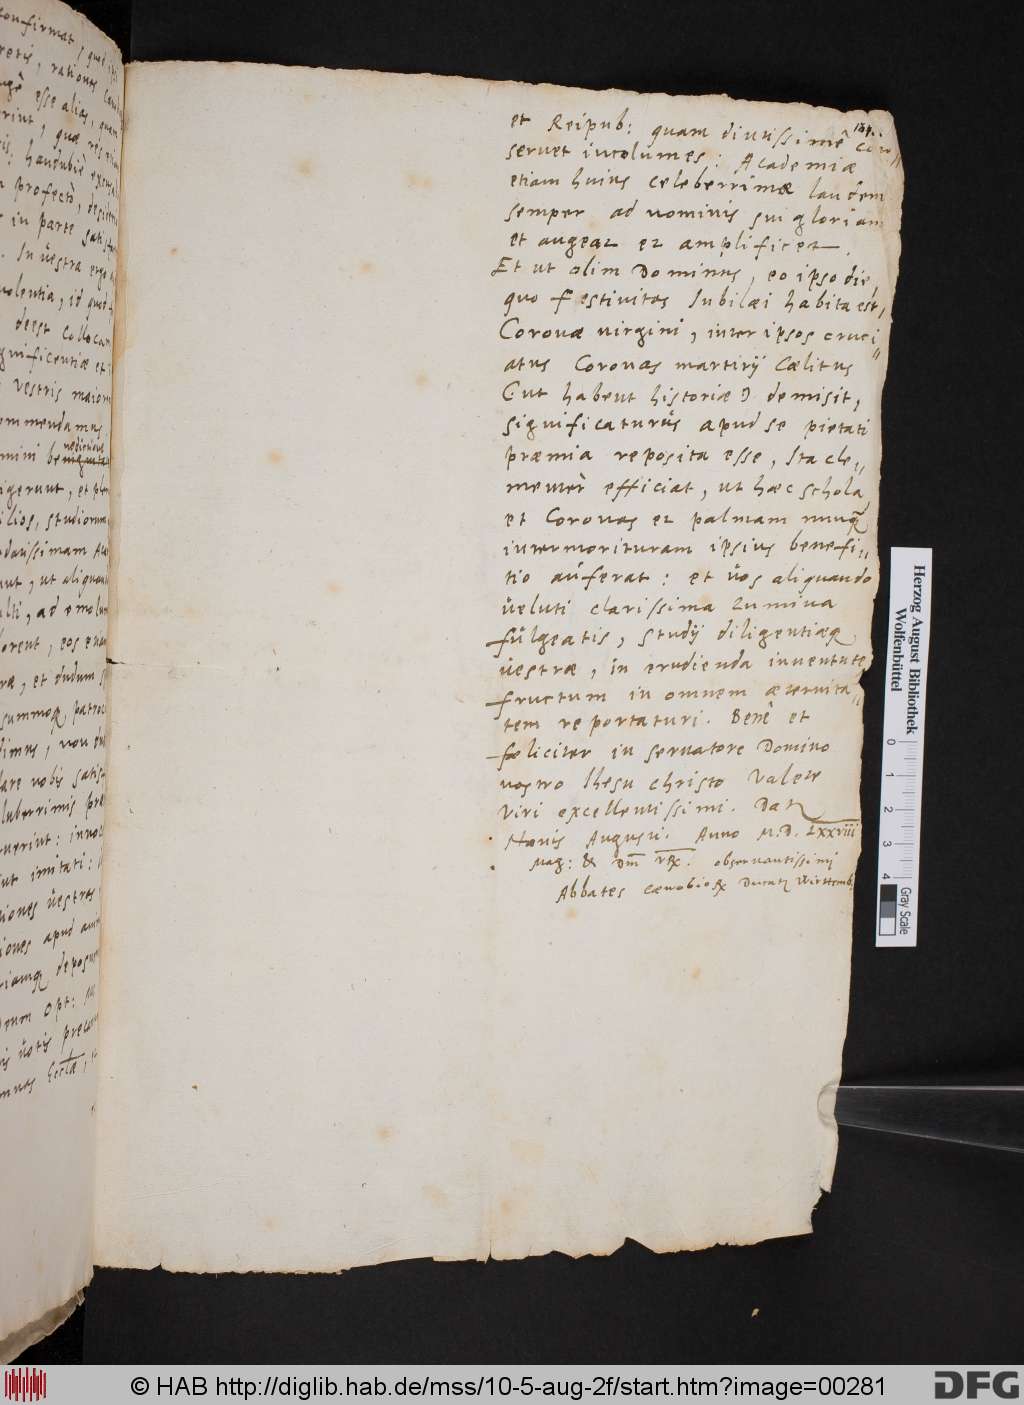 confirmat, quod
retis, rationes
esse alias, quam
rint, quæ res
haudubiè
profectò, desiderio
in parte satisfa
In vestra ergo
volentia, id quod
deest colloca
gnificentiæ et
vestris maiori
ommendamus
nediction
mini benignita
igerunt, et
ilios, studiorum
datissimam
aut, ut aliquan
ulti, ad
orent, eos
ræ, et dudum
summoq patro
dimus, non
dare vobis satis
luberrimis
uerint: innoc
ut imitati:
iones vestras
iones apud
riamq deposu
Deum Opt:
is votis preca
mnas Eccłæ,
184.
et Reipub: quam diutissimè con//
seruet incolumes: Academiæ
etiam huius celeberrimæ laudem
semper ad nominis sui gloriam
et augeat et amplificet.
Et ut olim Dominus, eo ipso die
quo festivitas Iubilæi habita est,
Coronæ virgini, inter ipsos cruci//
atus Coronas martirij Cælitus
(ut habent historiæ) demisit,
significaturus apud se pietati
præmia reposita esse, Ita cle//
menter efficiat, ut hæc schola
et Coronas et palmam nunq̃
intermorituram ipsius benefi//
tio auferat: et vos aliquando
veluti clarissima Lumina
fulgeatis, studij diligentiæq
vestræ, in erudienda inuentute
fructum in omnem æternita//
tem reportaturi. Benè et
fœliciter in seruatore Domino
nostro Ihesu Christo Valete
Viri excellentissimi. Dat
Nonis Augusti. Anno M.D. LXXVIII
Mag: & Dm̄ vr̄x. obseruantissimi
Abbates Cænobiorꝝ Ducatꝰ Wirttemb.
Herzog August Bibliothek
Wolfenbüttel
0 1 2 3 4
Gray Scale
© HAB http://diglib.hab.de/mss/10-5-aug-2f/start.htm?image=00281
DFG